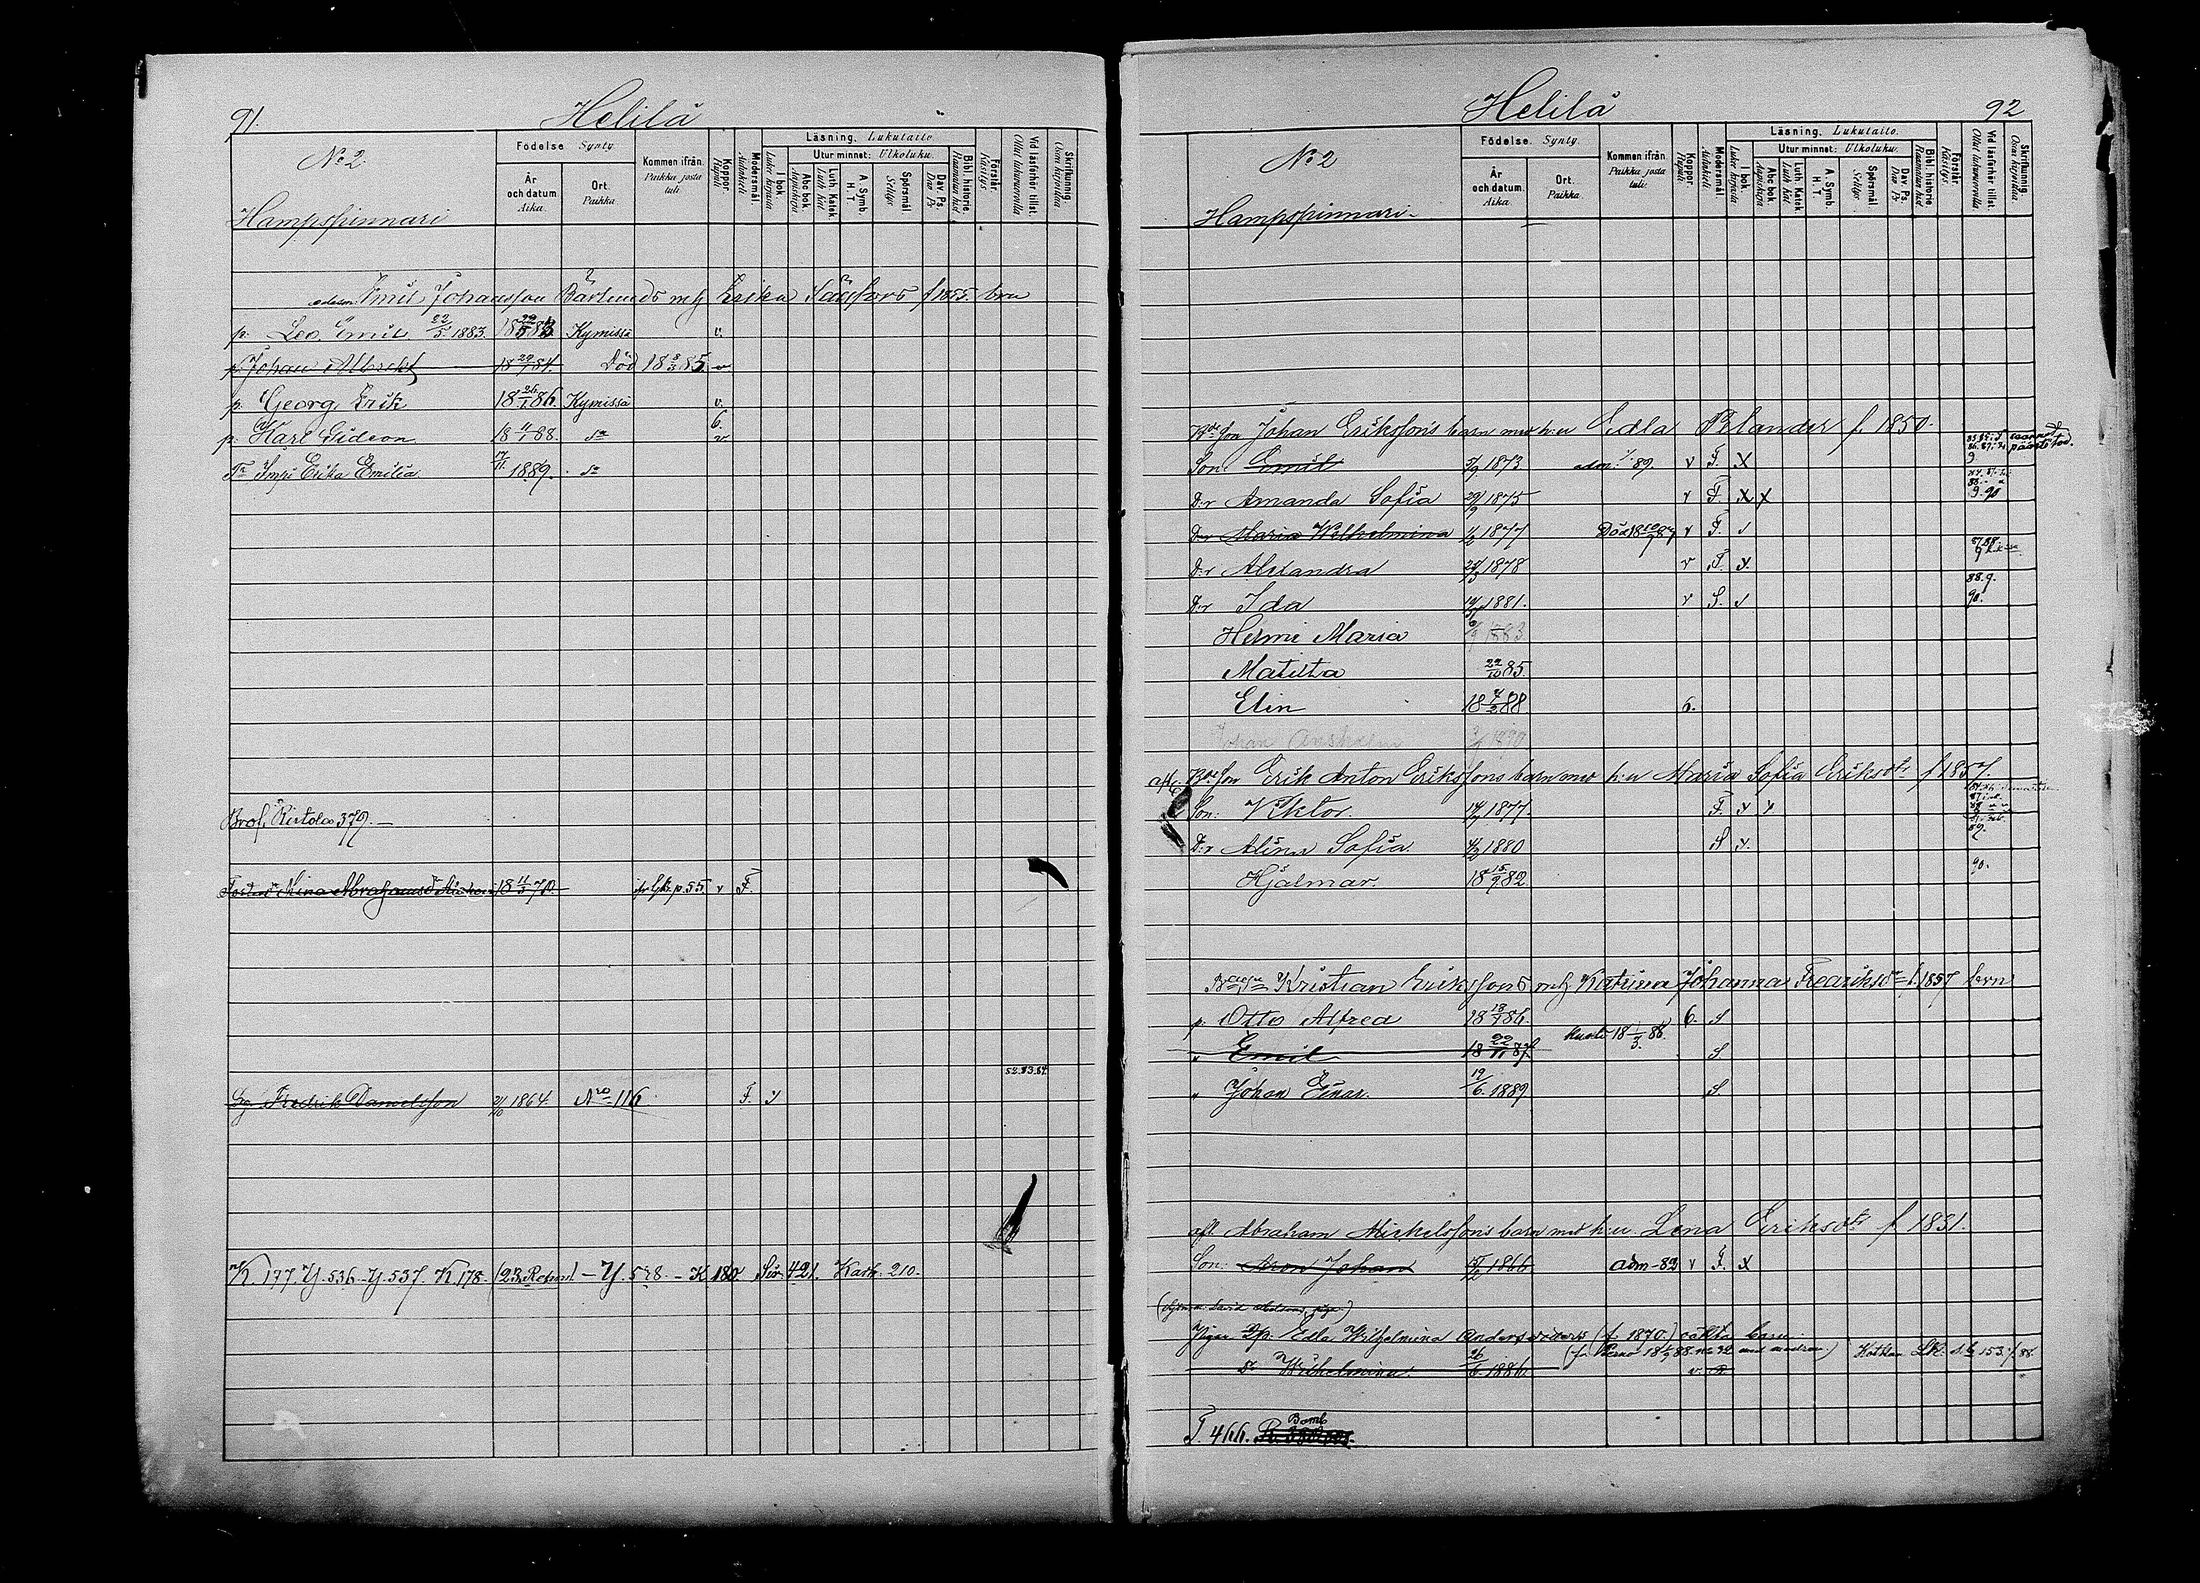 91.
Helilä
No 2.
Hampspinnari
Födelse. Synty.
År och datum. Aika.
Ort. Paikka.
Kommen ifrån. Paikka josta tuli.
Koppor. Rupuli.
Modersmål. Äidinkieli.
Läsning. Lukutaito.
I bok. Lukee kirjasta
Utur minnet: Ulkoluku.
Abc bok. Aapiskirja
Luth. Katek. Luth. Kat.
A. Symb. H. T.
Spörsmål. Selitys.
Dav. Ps. Dav. Ps.
Bibl. historie Raamatun hist.
Förstår. Käsitys.
Vid läsförhör tillst. Ollut lukuvuorolla
Skrifkunnig. Osaa kirjoittaa
Emil Johansson m h Erika Säfors f 1855. barn
p. Leo Emil 22/5 1883. 18 22/5 83 Kymissä v.
p Johan Albrekt 18 29/7 84. Död 18 8/3 85. v
p. Georg Erik 18 26/1 86. Kymissä v.
p. Karl Gideon 18 11/1 88. 6. v
Tr Impi Erika Emilia 17/11 1889.
Brol. Ristola 379.
Mina Abrahamsdr 18 11/3 70 p. 55 v F.
52. 83. 84.
Fredrik Danielsson 21/10 1864. No 116 F. x
K 177. Y. 536. Y. 537. K 178. (23 Reform) - Y. 528. - K 180. Sir. 421. Kark. 210.
Helilä
92
No 2
Hampspinnari.
Födelse. Synty.
År och datum. Aika.
Ort. Paikka.
Kommen ifrån. Paikka josta tuli.
Koppor. Rupuli.
Modersmål. Äidinkieli.
Läsning. Lukutaito.
I bok. Lukee kirjasta
Utur minnet: Ulkoluku.
Abc bok. Aapiskirja
Luth. Katek. Luth. Kat.
A. Symb. H. T.
Spörsmål. Selitys.
Dav. Ps. Dav. Ps.
Bibl. historie Raamatun hist.
Förstår. Käsitys.
Vid läsförhör tillst. Ollut lukuvuorolla
Skrifkunnig. Osaa kirjoittaa.
Johan Erikssons barn med h:u Edla Relander f. 1850.
Son: Emil 3/9 1873 adm. 89. v F. X
D:r Amanda Sofia 29/9 1875 v F. X X 9. 90
D:r Maria Wilhelmina 1/2 1877 Död v F. x
D:r Alexandra 1878 v F. x.
D:r Ida 1881. v S. x 88. 9. 90.
Helmi Maria 1883
Matilta 22/10 85.
Elin 18 4/3 88 6.
Johan 1890
Erik Anton Erikssons barn med h:u Maria Sofia Eriksdtr f 1857.
Son: Viktor. 1877. F. x x
D:r Alina Sofia 4/2 1880 S x. 89.
Hjalmar. 18 15/9 82 90.
Kristian Erikssons m h Katrina Johanna Fredriksdr f. 1857 barn
p. Otto Alfred 18 18/1 86. 6. S
" Emil 18 22/11 87. kuoli 18 1/3 88. S
" Johan Einar. 19/6 1889 S.
afl. Abraham Mickelssons barn med h:u Lena Eriksdtr f. 1831.
Son: Aron Johan 1866 adm-82 v F. X
Pigan Edla Wilhelmina Andersdotters (f. 1870.) oäkta barn.
Wilhelmina. 26/6 1886 v. R.
T. 466.